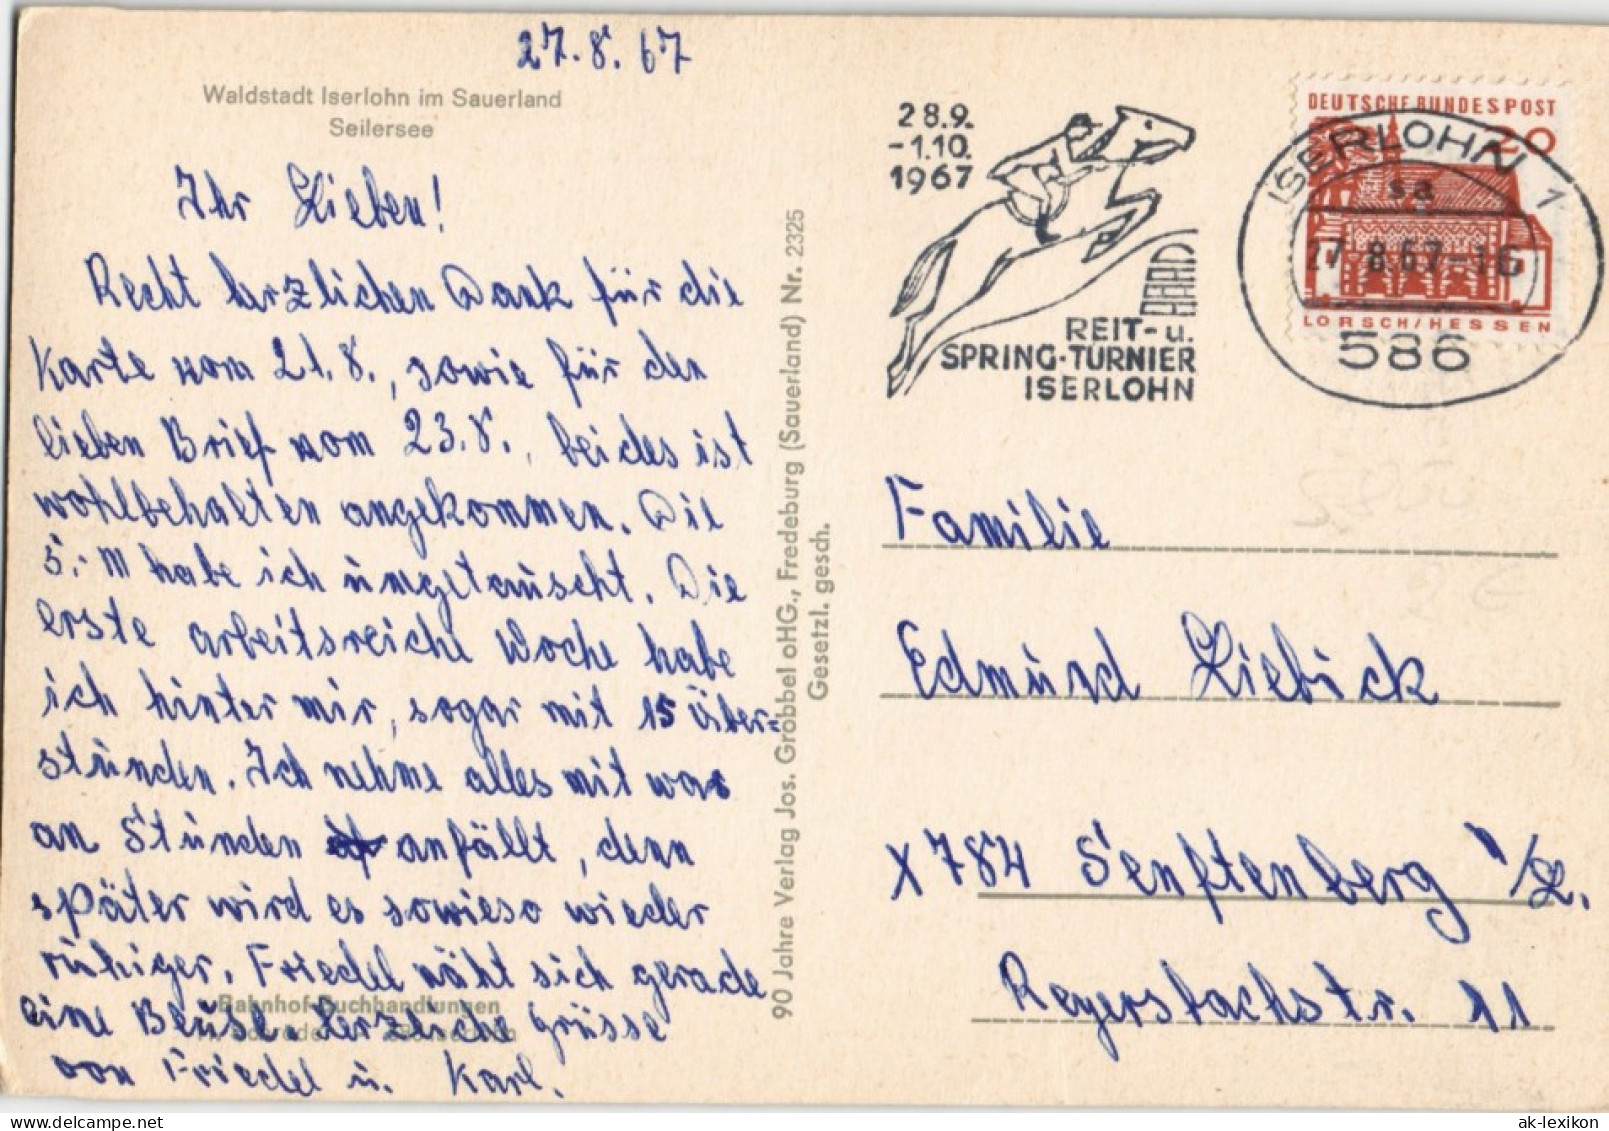 27.8.67
Waldstadt Iserlohn im Sauerland
Seilersee
Ihr Lieben!
Recht herzlichen Dank für die
Karte vom 21.8., sowie für den
lieben Brief vom 23.8., beides ist
wohlbehalten angekommen. Die
5,- M habe ich umgetauscht. Die
erste arbeitsreiche Woche habe
ich hinter mir, sogar mit 15 Über=
stunden. Ich nehme alles mit was
an Stunden anfällt, denn
später wird es sowieso wieder
ruhiger. Friedel näht sich gerade
eine Bluse. Herzliche Grüsse
von Friedel u. Karl.
Bahnhof-Buchhandlungen
90 Jahre Verlag Jos. Grobbel oHG., Fredeburg (Sauerland) Nr. 2325
Gesetzl. gesch.
28.9.
-1.10.
1967
REIT- u.
SPRING-TURNIER
ISERLOHN
DEUTSCHE BUNDESPOST
20
LORSCH/HESSEN
ISERLOHN 1
sa
27.8.67-16
586
Familie
Edmund Liebick
X 784 Senftenberg 1/L.
Reyersbachstr. 11
ak-ansichtskarten.de
ak-lexikon